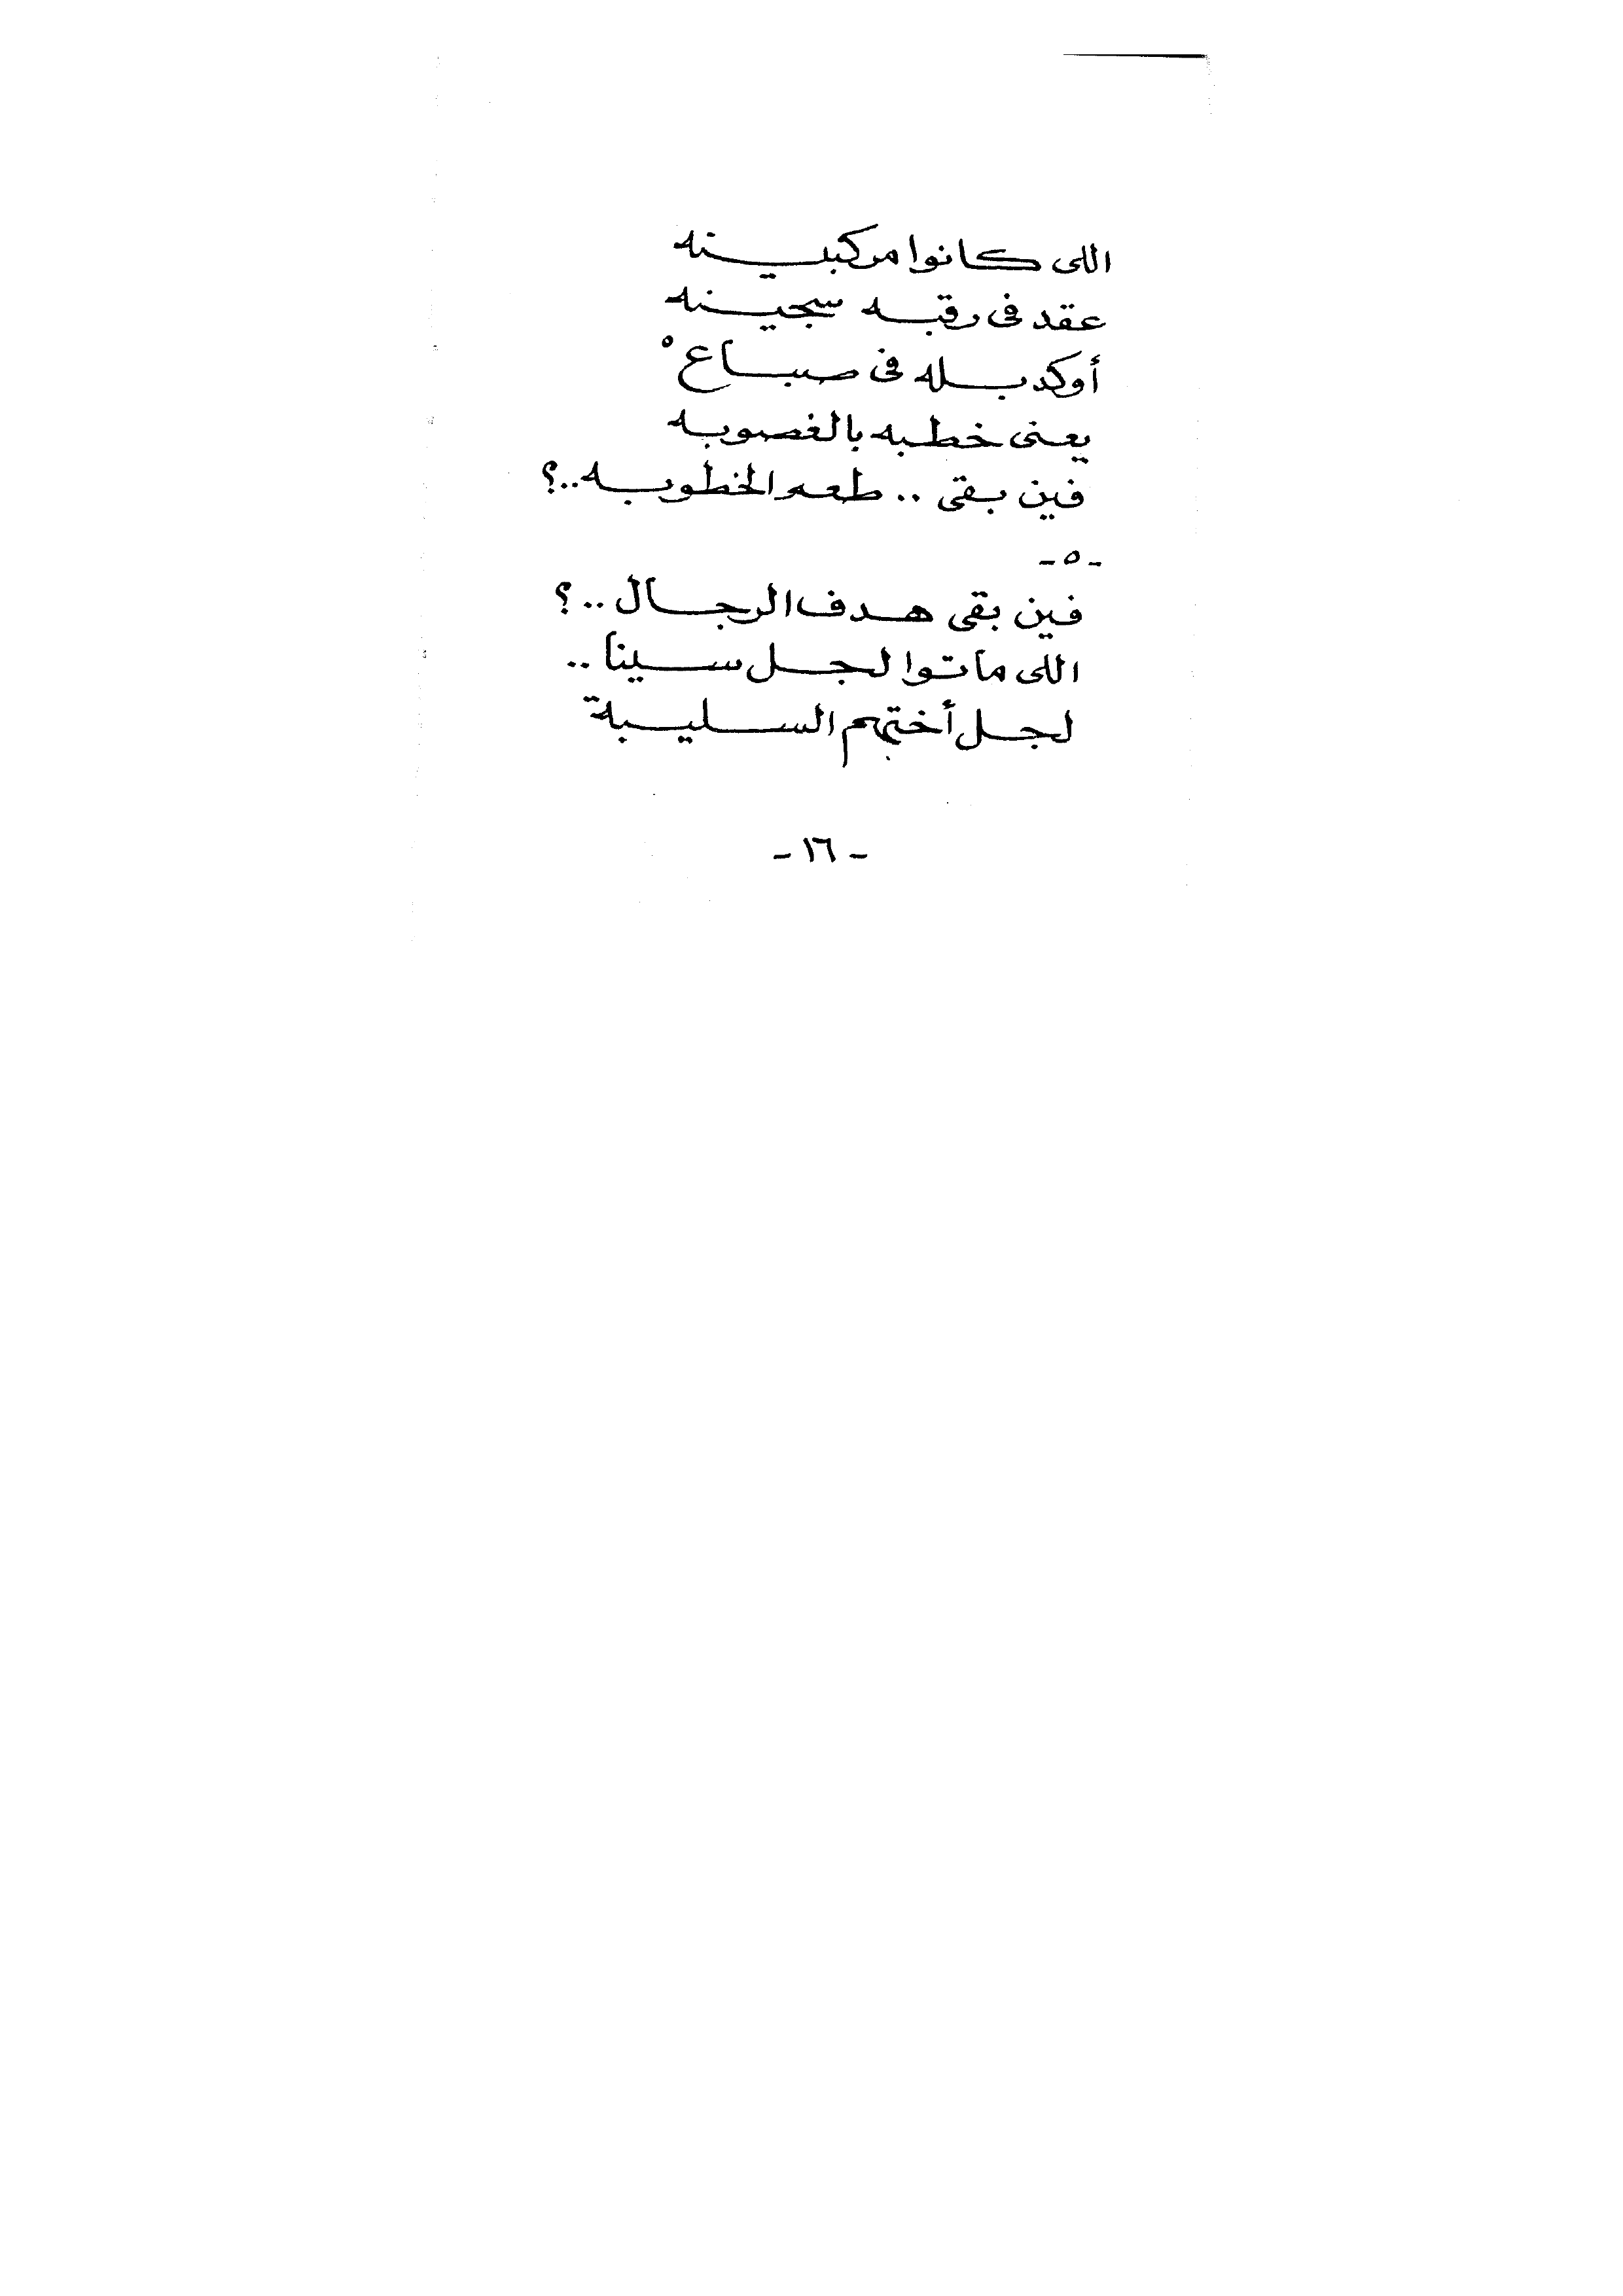 اللى كانوا مركبينه
عقد فى رقبه سجينه
أو كدبله فى صباعْ
يعنى خطبه بالغصوبه
فين بقى .. طعم الخطوبه..؟
- ٥ -
فين بقى هدف الرجال ..؟
اللى ماتوا لجل سينا ..
لجل أختهم السليبة
- ١٦ -